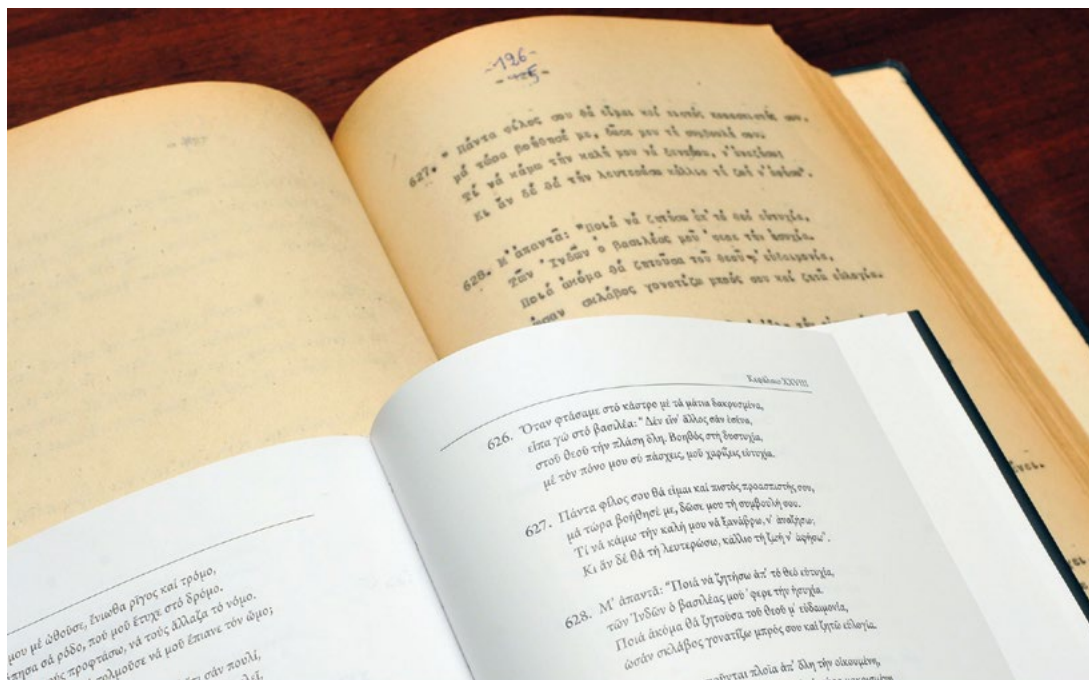 -196-
627. "Πάντα φίλος σου θά εἶμαι καί πιστός προασπιστής σου,
μά τώρα βοήθησέ με, δῶσε μου τή συμβουλή σου.
Τί νά κάμω τήν καλή μου νά ξαναβρῶ, ν' ἀναζήσω;
Κι ἄν δέ θά τήν λευτερώσω κάλλιο τή ζωή ν' ἀφήσω".
628. Μ' ἀπαντᾶ: "Ποιά νά ζητήσω ἀπ' τό θεό εὐτυχία,
τῶν Ἰνδῶν ὁ βασιλέας μοῦ 'φερε τήν ἡσυχία.
Ποιά ἀκόμα θά ζητοῦσα τοῦ θεοῦ μ' εὐδαιμονία,
ὡσαν σκλάβος γονατίζω μπρός σου καί ζητῶ εὐλογία.
Κεφάλαιο XXVIII
626. Ὅταν φτάσαμε στό κάστρο μέ τά μάτια δακρυσμένα,
εἶπα γώ στό βασιλέα: "Δέν εἶν' ἄλλος σάν ἐσένα,
στοῦ θεοῦ τήν πλάση ὅλη. Βοηθός στή δυστυχία,
μέ τόν πόνο μου σύ πάσχεις, μοῦ χαρίζεις εὐτυχία.
627. Πάντα φίλος σου θά εἶμαι καί πιστός προασπιστής σου,
μά τώρα βοήθησέ με, δῶσε μου τή συμβουλή σου.
Τί νά κάμω τήν καλή μου νά ξανάβρω, ν' ἀναζήσω;
Κι ἄν δέ θά τή λευτερώσω, κάλλιο τή ζωή ν' ἀφήσω".
628. Μ' ἀπαντᾶ: "Ποιά νά ζητήσω ἀπ' τό θεό εὐτυχία,
τῶν Ἰνδῶν ὁ βασιλέας μοῦ 'φερε τήν ἡσυχία.
Ποιά ἀκόμα θά ζητοῦσα τοῦ θεοῦ μ' εὐδαιμονία,
ὡσάν σκλάβος γονατίζω μπρός σου καί ζητῶ εὐλογία.
πλοῖα ἀπ' ὅλη τήν οἰκουμένη,
μου μέ ὠθοῦσε, ἔνιωθα ρῖγος καί τρόμο,
σά ρόδο, πού μοῦ ἔτυχε στό δρόμο.
προφτάσω, νά τούς ἄλλαζα τό νόμο.
νά μοῦ ἔπιανε τόν ὦμο;
σάν πουλί,